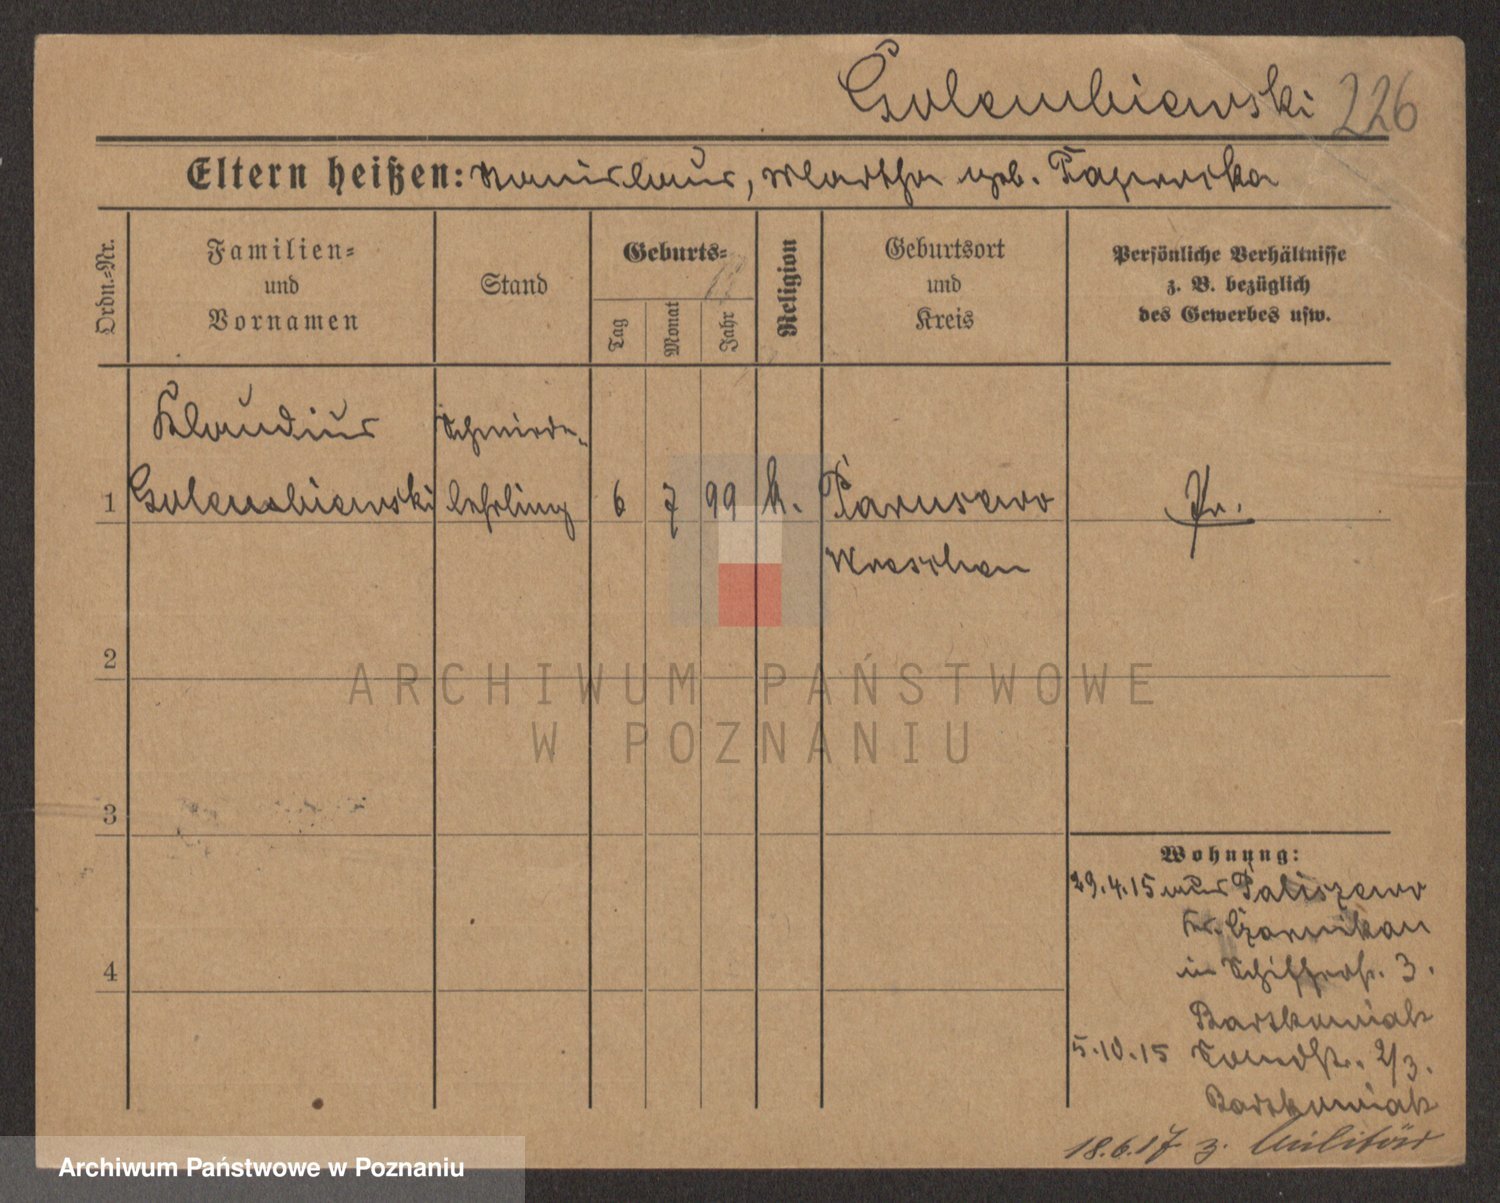 Golembiewski 226
Eltern heißen: Stanislaus, Martha geb.
Ordn.-Nr.
Familien-
und
Vornamen
Stand
Geburts-
Tag
Monat
Jahr
Religion
Geburtsort
und
Kreis
Persönliche Verhältnisse
z. B. bezüglich
des Gewerbes usw.
Klaudius Schmiede-
1 Golembiewski lehrling 6 7 99 k. Parusewo Pr.
Wreschen
2
ARCHIWUM PAŃSTWOWE
W POZNANIU
3
Wohnung:
29.4.15 aus
Kr. Czarnikau
in 3.
Bartkowiak
4
5.10.15 2/3.
Bartkowiak
18.6.17 z. Militär
Archiwum Państwowe w Poznaniu